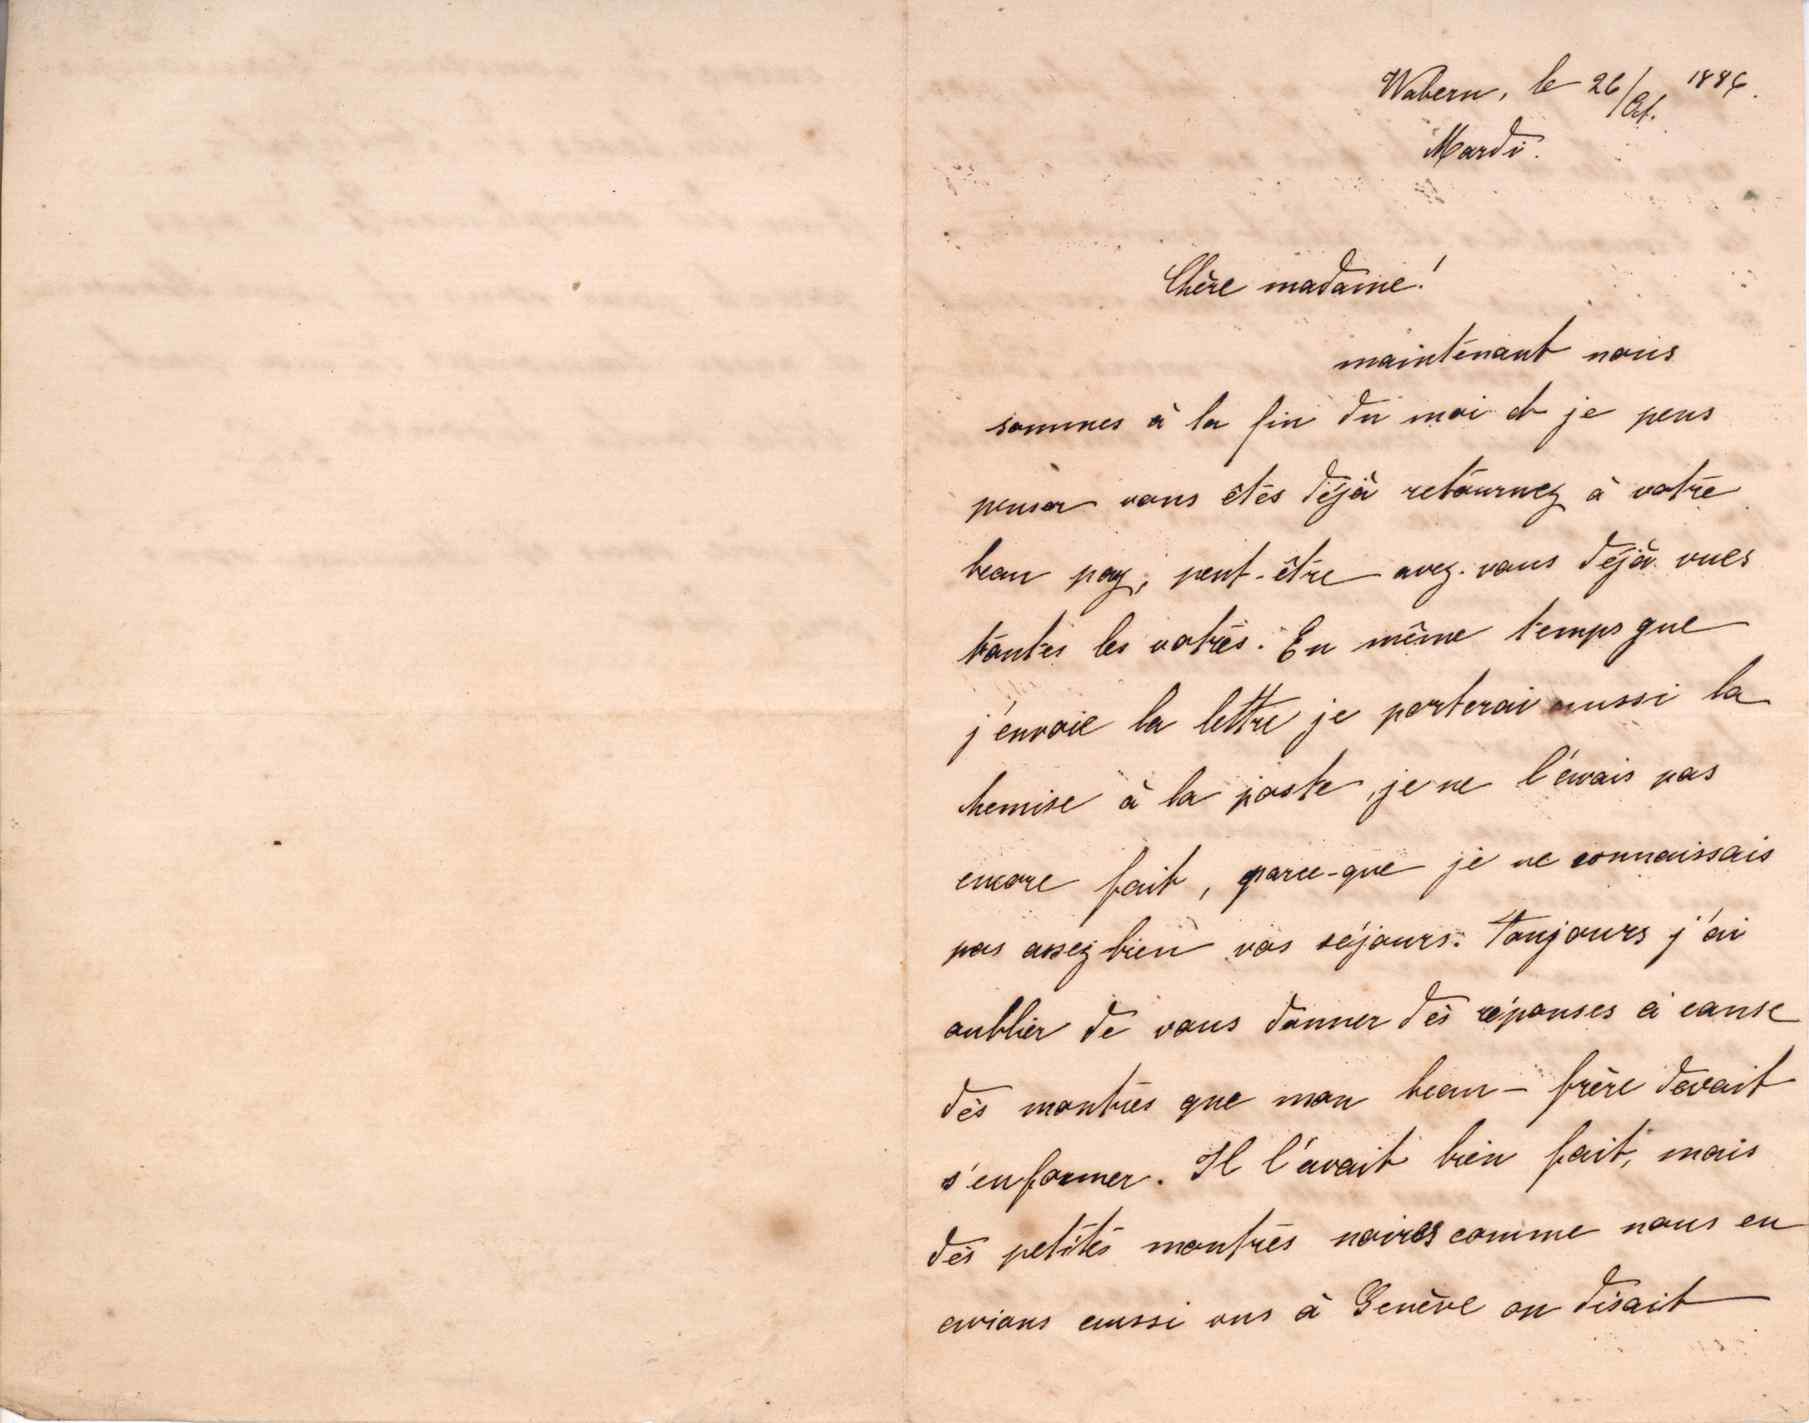 Wabern, le 26/Oct. 1886.
Mardi.
Chère madame!
maintenant nous
sommes à la fin du moi et je peus
penser vous êtes déjà retournez à votre
beau pay, peut-être avez-vous déjà vues
toutes les votres. En même temps que
j'envoie la lettre je porterai aussi la
hemise à la poste, je ne l'avais pas
encore fait, parce-que je ne connaissais
pas assez bien vos séjours. Toujours j'ai
oublier de vous donner des réponses à cause
des montres que mon beau-frère devait
s'enformer. Il l'avait bien fait, mais
des petites montres noires comme nous en
avions aussi vus à Genève on disait